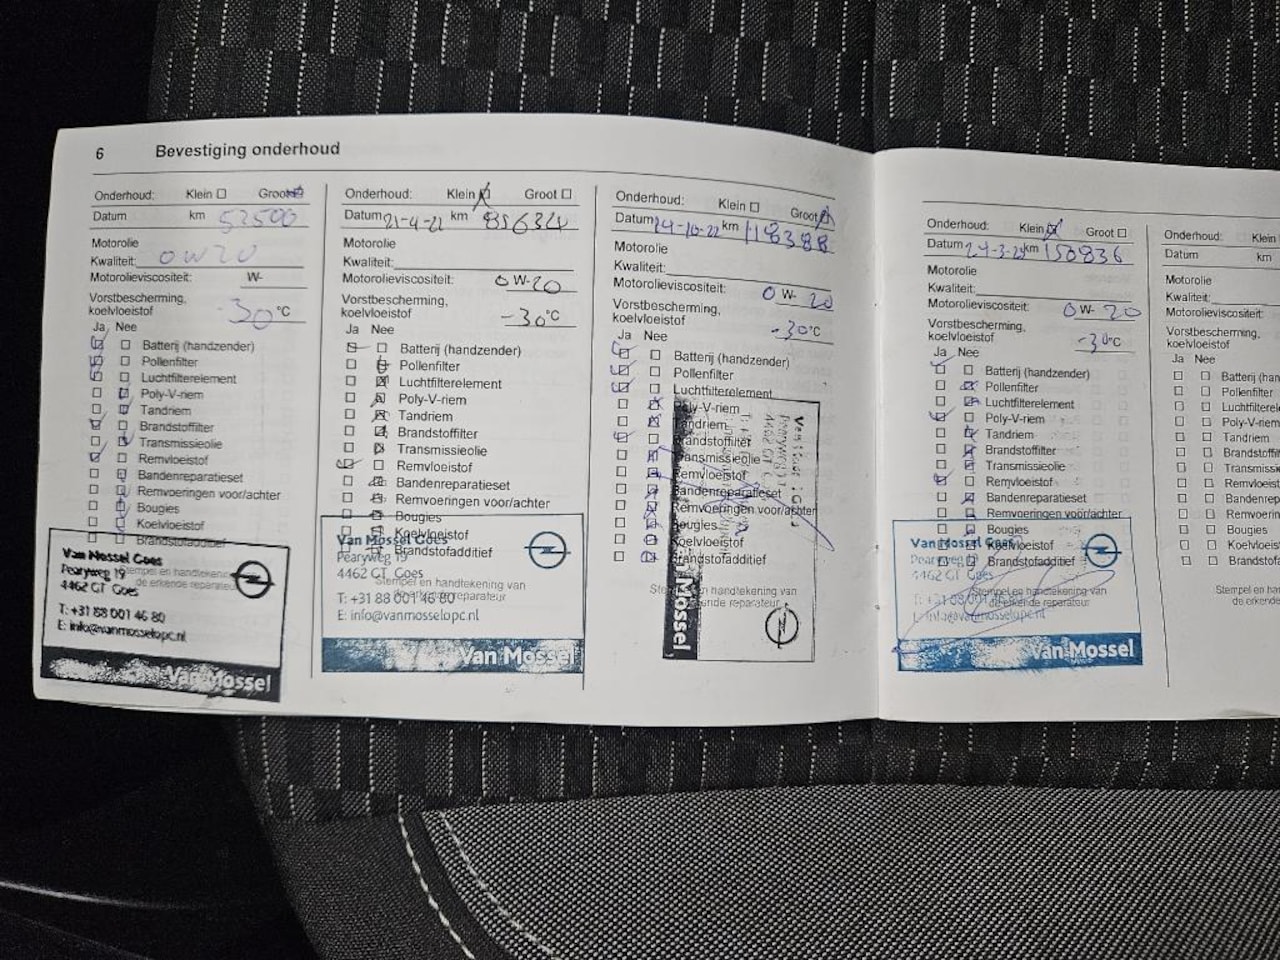 6 Bevestiging onderhoud
Onderhoud: Klein Groot
Datum km 52500
Motorolie
Kwaliteit: 0W20
Motorolieviscositeit: W-
Vorstbescherming,
koelvloeistof -30°C
Ja Nee
Batterij (handzender)
Pollenfilter
Luchtfilterelement
Poly-V-riem
Tandriem
Brandstoffilter
Transmissieolie
Remvloeistof
Bandenreparatieset
Remvoeringen voor/achter
Bougies
Koelvloeistof
Brandstofadditief
Van Mossel Goes
Pearyweg 19
4462 GT Goes
Stempel en handtekening
de erkende reparateur
T: +31 88 001 46 80
E: info@vanmosselopc.nl
Van Mossel
Onderhoud: Klein Groot
Datum 21-4-22 km
Motorolie
Kwaliteit:
Motorolieviscositeit: 0W-20
Vorstbescherming,
koelvloeistof -30°C
Ja Nee
Batterij (handzender)
Pollenfilter
Luchtfilterelement
Poly-V-riem
Tandriem
Brandstoffilter
Transmissieolie
Remvloeistof
Bandenreparatieset
Remvoeringen voor/achter
Bougies
Koelvloeistof
Brandstofadditief
Van Mossel Goes
Pearyweg 19
4462 GT Goes
Stempel en handtekening van
de erkende reparateur
T: +31 88 001 46 80
E: info@vanmosselopc.nl
Van Mossel
Onderhoud: Klein Groot
Datum 24-10-22 km 118388
Motorolie
Kwaliteit:
Motorolieviscositeit: 0W-20
Vorstbescherming,
koelvloeistof -30°C
Ja Nee
Batterij (handzender)
Pollenfilter
Luchtfilterelement
Poly-V-riem
Tandriem
Brandstoffilter
Transmissieolie
Remvloeistof
Bandenreparatieset
Remvoeringen voor/achter
Bougies
Koelvloeistof
Brandstofadditief
handtekening van
erkende reparateur
4462 GT
Mossel
Onderhoud: Klein Groot
Datum 24-3-23 km 150836
Motorolie
Kwaliteit:
Motorolieviscositeit: 0W-20
Vorstbescherming,
koelvloeistof -30°C
Ja Nee
Batterij (handzender)
Pollenfilter
Luchtfilterelement
Poly-V-riem
Tandriem
Brandstoffilter
Transmissieolie
Remvloeistof
Bandenreparatieset
Remvoeringen voor/achter
Bougies
Koelvloeistof
Brandstofadditief
Van Mossel Goes
Pearyweg 19
4462 GT Goes
Stempel en handtekening van
de erkende reparateur
T: +31 88 001 46 80
E: info@vanmosselopc.nl
Van Mossel
Onderhoud: Klein
Datum km
Motorolie
Kwaliteit:
Motorolieviscositeit:
Vorstbescherming,
koelvloeistof
Ja Nee
Batterij (han
Pollenfilter
Luchtfilterele
Poly-V-riem
Tandriem
Brandstoffilt
Transmissie
Remvloeist
Bandenrep
Remvoerin
Bougies
Koelvloeist
Brandstofa
Stempel en ha
de erkend